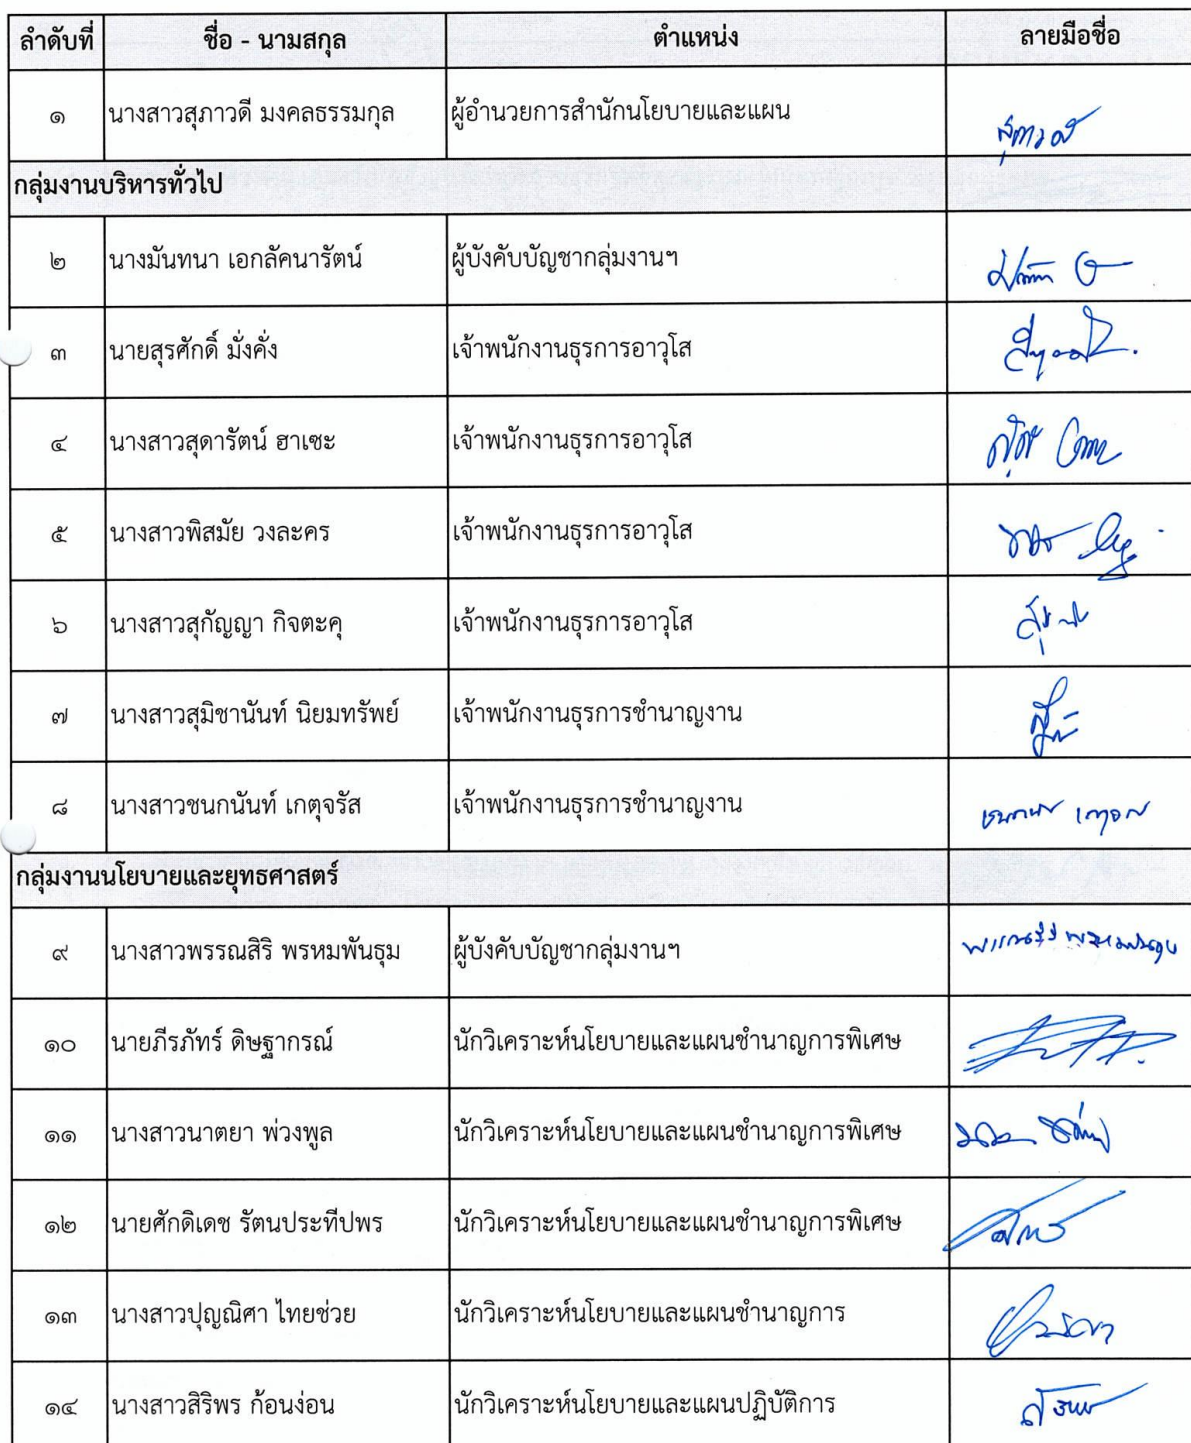 ลำดับที่ ชื่อ - นามสกุล ตำแหน่ง ลายมือชื่อ
๑ นางสาวสุภาวดี มงคลธรรมกุล ผู้อำนวยการสำนักนโยบายและแผน
กลุ่มงานบริหารทั่วไป
๒ นางมันทนา เอกลัคนารัตน์ ผู้บังคับบัญชากลุ่มงานฯ
๓ นายสุรศักดิ์ มั่งคั่ง เจ้าพนักงานธุรการอาวุโส
๔ นางสาวสุดารัตน์ ฮาเซะ เจ้าพนักงานธุรการอาวุโส
๕ นางสาวพิสมัย วงละคร เจ้าพนักงานธุรการอาวุโส
๖ นางสาวสุกัญญา กิจตะคุ เจ้าพนักงานธุรการอาวุโส
๗ นางสาวสุมิชานันท์ นิยมทรัพย์ เจ้าพนักงานธุรการชำนาญงาน
๘ นางสาวชนกนันท์ เกตุจรัส เจ้าพนักงานธุรการชำนาญงาน
กลุ่มงานนโยบายและยุทธศาสตร์
๙ นางสาวพรรณสิริ พรหมพันธุม ผู้บังคับบัญชากลุ่มงานฯ
๑๐ นายภีรภัทร์ ดิษฐากรณ์ นักวิเคราะห์นโยบายและแผนชำนาญการพิเศษ
๑๑ นางสาวนาตยา พ่วงพูล นักวิเคราะห์นโยบายและแผนชำนาญการพิเศษ
๑๒ นายศักดิเดช รัตนประทีปพร นักวิเคราะห์นโยบายและแผนชำนาญการพิเศษ
๑๓ นางสาวปุญณิศา ไทยช่วย นักวิเคราะห์นโยบายและแผนชำนาญการ
๑๔ นางสาวสิริพร ก้อนง่อน นักวิเคราะห์นโยบายและแผนปฏิบัติการ